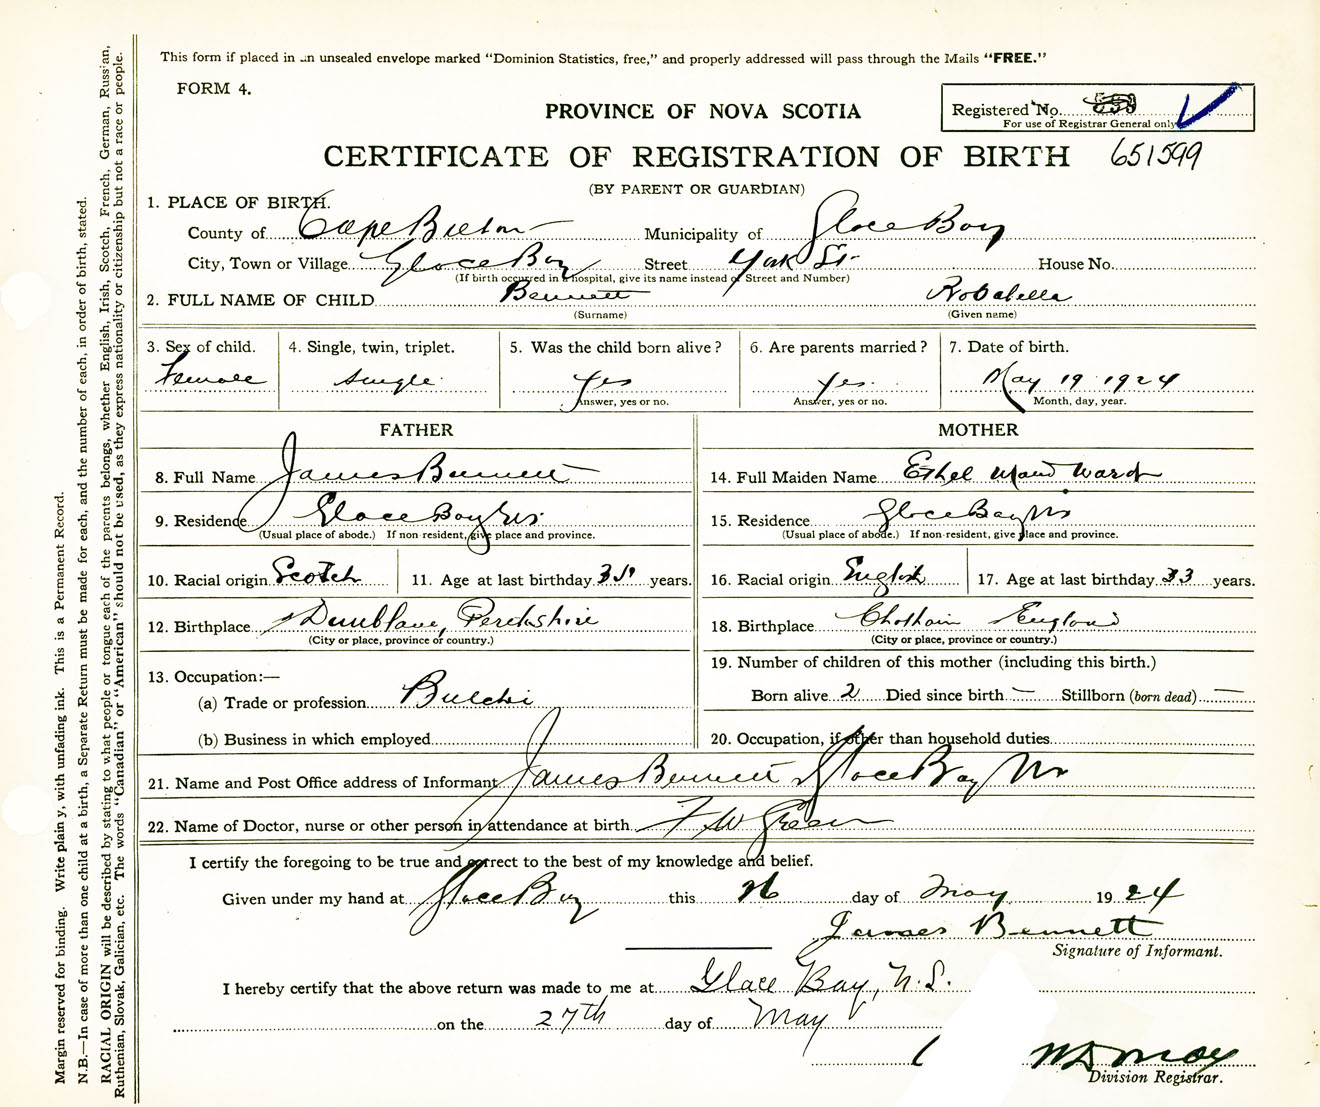 This form if placed in an unsealed envelope marked "Dominion Statistics, free," and properly addressed will pass through the Mails "FREE."
FORM 4.
PROVINCE OF NOVA SCOTIA
Registered No.
For use of Registrar General only
CERTIFICATE OF REGISTRATION OF BIRTH 651599
(BY PARENT OR GUARDIAN)
1. PLACE OF BIRTH.
County of Cape Breton Municipality of Glace Bay
City, Town or Village Glace Bay Street York St. House No.
(If birth occurred in a hospital, give its name instead of Street and Number)
2. FULL NAME OF CHILD Bennett Robabella
(Surname) (Given name)
3. Sex of child. 4. Single, twin, triplet. 5. Was the child born alive? 6. Are parents married? 7. Date of birth.
Female single Yes Yes. May 19 1924
Answer, yes or no. Answer, yes or no. Month, day, year.
FATHER MOTHER
8. Full Name James Bennett 14. Full Maiden Name Ethel Maud Ward
9. Residence Glace Bay NS. 15. Residence Glace Bay NS
(Usual place of abode.) If non resident, give place and province. (Usual place of abode.) If non-resident, give place and province.
10. Racial origin Scotch 11. Age at last birthday 35 years. 16. Racial origin English 17. Age at last birthday 33 years.
12. Birthplace Dumblane, Perthshire 18. Birthplace Chatham England
(City or place, province or country.) (City or place, province or country.)
13. Occupation:— 19. Number of children of this mother (including this birth.)
(a) Trade or profession Butcher Born alive 2 Died since birth — Stillborn (born dead) —
(b) Business in which employed 20. Occupation, if other than household duties
21. Name and Post Office address of Informant James Bennett Glace Bay NS
22. Name of Doctor, nurse or other person in attendance at birth. F W Green
I certify the foregoing to be true and correct to the best of my knowledge and belief.
Given under my hand at Glace Bay this 26 day of May 1924
James Bennett
Signature of Informant.
I hereby certify that the above return was made to me at Glace Bay, N.S.
on the 27th day of May
Division Registrar.
Margin reserved for binding. Write plainly, with unfading ink. This is a Permanent Record.
N.B.—In case of more than one child at a birth, a Separate Return must be made for each, and the number of each, in order of birth, stated.
RACIAL ORIGIN will be described by stating to what people or tongue each of the parents belongs, whether English, Irish, Scotch, French, German, Russian,
Ruthenian, Slovak, Galician, etc. The words "Canadian" or "American" should not be used, as they express nationality or citizenship but not a race or people.